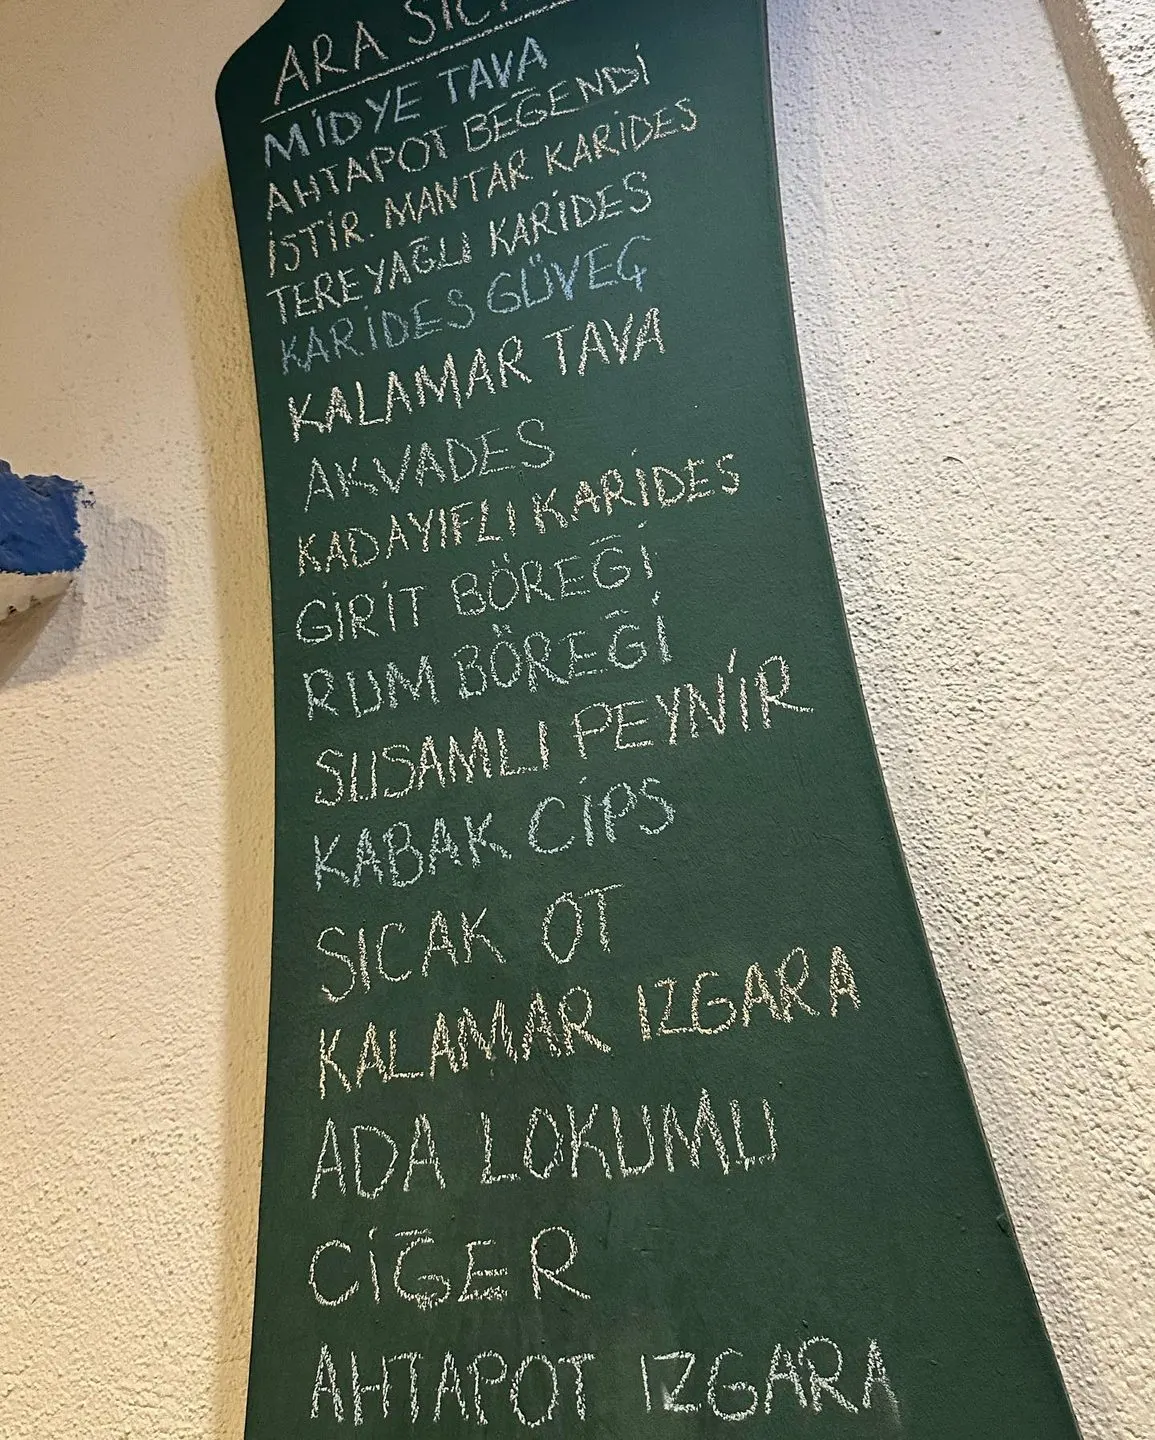 ARA
MİDYE TAVA
AHTAPOT BEĞENDİ
İSTİR. MANTAR KARİDES
TEREYAĞLI KARİDES
KARİDES GÜVEÇ
KALAMAR TAVA
AKVADES
KADAYIFLI KARİDES
GİRİT BÖREĞİ
RUM BÖREĞİ
SUSAMLI PEYNİR
KABAK CİPS
SICAK OT
KALAMAR IZGARA
ADA LOKUMU
CİĞER
AHTAPOT IZGARA